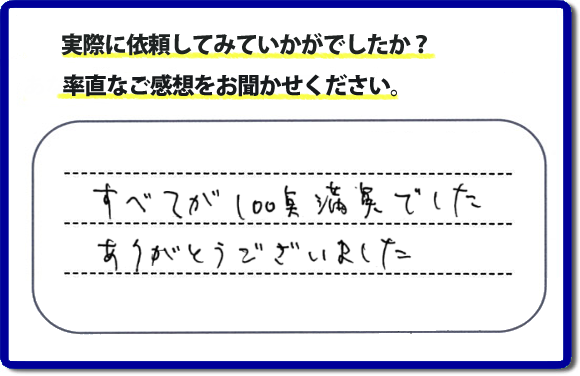 実際に依頼してみていかがでしたか？
率直なご感想をお聞かせください。
すべてが100点満点でした
ありがとうございました